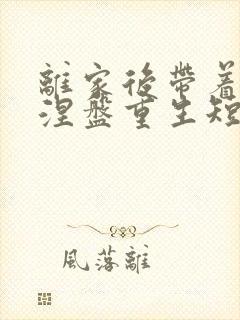 離家後帶着
涅盤重生短
風落離